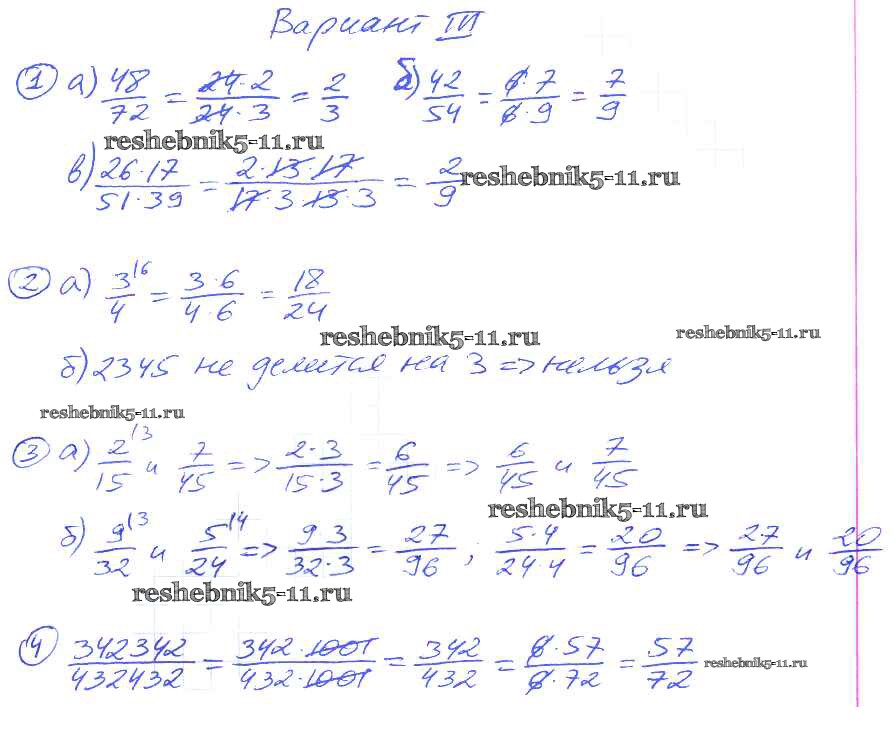 Вариант III
① а) 48/72 = 24·2/24·3 = 2/3 б) 42/54 = 6·7/6·9 = 7/9
reshebnik5-11.ru
в) 26·17/51·39 = 2·13·17/17·3·13·3 = 2/9 reshebnik5-11.ru
② а) 3/4 \6 = 3·6/4·6 = 18/24
reshebnik5-11.ru reshebnik5-11.ru
б) 2345 не делится на 3 => нельзя
reshebnik5-11.ru
③ а) 2/15 \3 и 7/45 => 2·3/15·3 = 6/45 => 6/45 и 7/45
reshebnik5-11.ru
б) 9/32 \3 и 5/24 \4 => 9 3/32·3 = 27/96 ; 5·4/24·4 = 20/96 => 27/96 и 20/96
reshebnik5-11.ru
④ 342342/432432 = 342·1001/432·1001 = 342/432 = 6·57/6·72 = 57/72 reshebnik5-11.ru